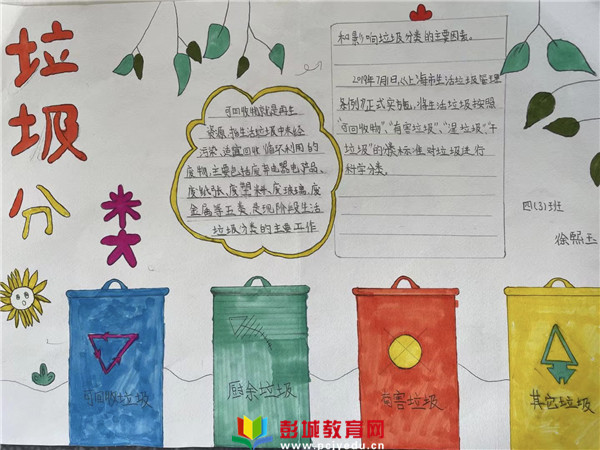 垃
圾
分
类
可回收物就是再生
资源,指生活垃圾中未经
污染、适宜回收循环利用的
废物,主要包括废弃电器电产品、
废纸张、废塑料、废玻璃、废
金属等五类,是现阶段生活
垃圾分类的主要工作
和影响垃圾分类的主要因素。
2019年7月1日,《上海市生活垃圾管理
条例》正式实施,将生活垃圾按照
"可回收物"、"有害垃圾"、"湿垃圾"、"干
垃圾"的
标准对垃圾进行
科学分类。
四(3)班
徐熙
可回收垃圾
厨余垃圾
有害垃圾
其它垃圾
彭城教育网
www.pcjyedu.cn